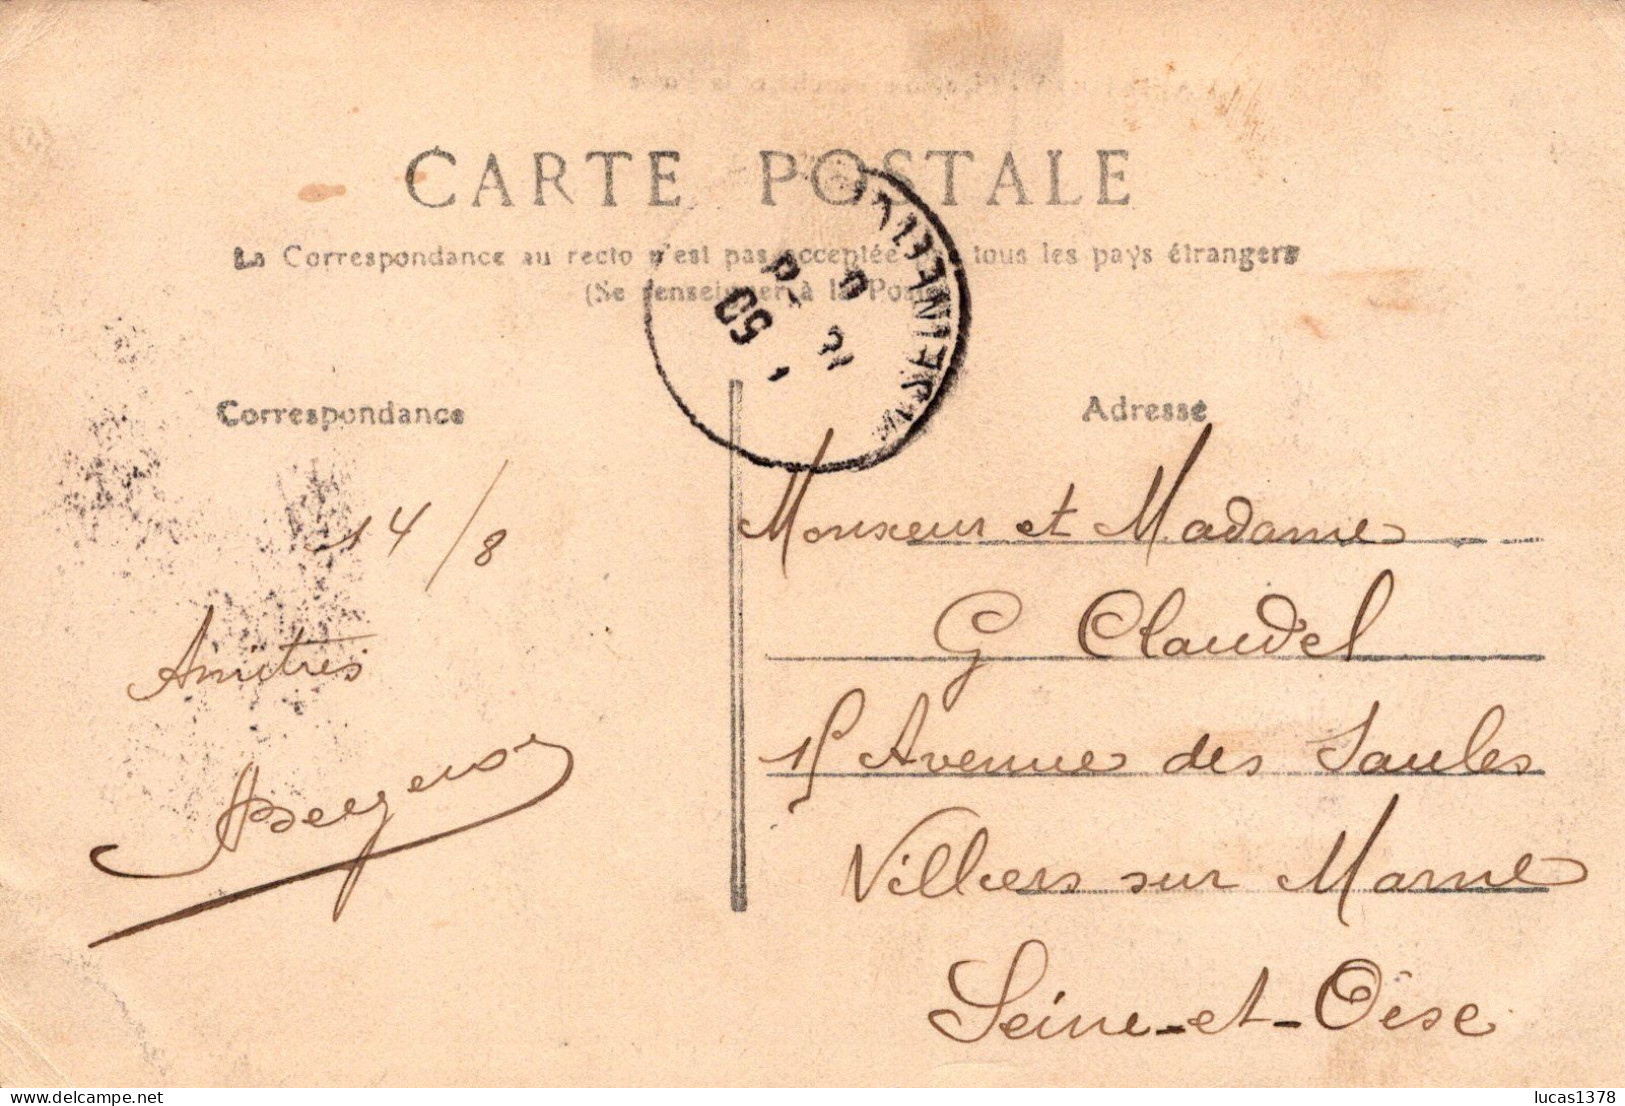 CARTE POSTALE
La Correspondance au recto n'est pas acceptée tous les pays étrangers
(Se renseigner à la Poste
50
Correspondance
Adresse
14/8
Amitiés
Monsieur et Madame
G Claudel
Avenue des Saules
Villiers sur Marne
Seine-et-Oise
www.delcampe.net
lucas1378